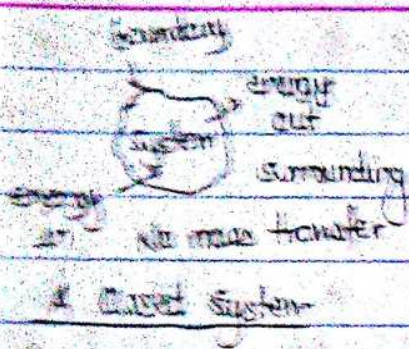 boundary
energy
out
system
surrounding
energy
in No mass transfer
Closed System